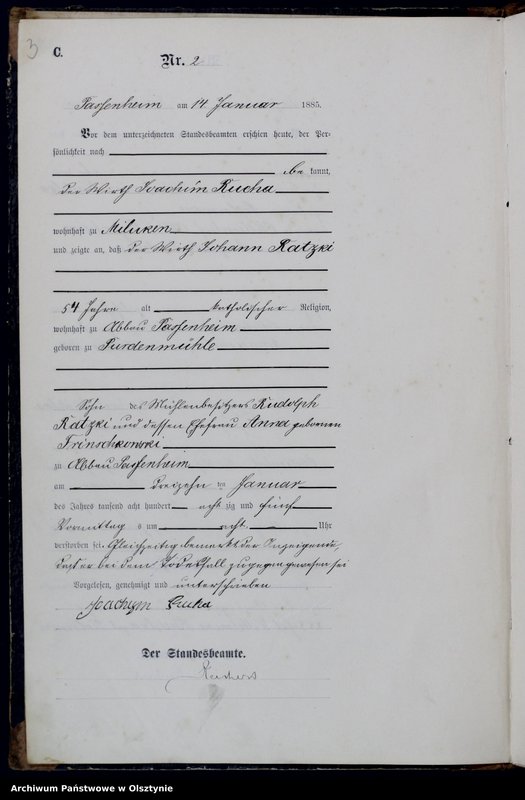 3
C.
Nr. 2
Passenheim am 14 Januar 1885.
Vor dem unterzeichneten Standesbeamten erschien heute, der Per-
sönlichkeit nach
be kannt,
der Wirth Joachim Kucha
wohnhaft zu Miluken
und zeigte an, daß der Wirth Johann Ratzki
54 Jahre alt katholischer Religion,
wohnhaft zu Abbau Passenheim
geboren zu Purdenmühle
Sohn des Mühlenbesitzers Rudolph
Ratzki und dessen Ehefrau Anna geborenen
zu Abbau Passenheim
am dreizehn ten Januar
des Jahres tausend acht hundert acht zig und fünf
Vormittag s um acht Uhr
verstorben sei. Gleichzeitig bemerkt der Anzeigende,
daß er bei dem Todesfall zugegen gewesen sei
Vorgelesen, genehmigt und unterschrieben
Joachym Kucha
Der Standesbeamte.
Archiwum Państwowe w Olsztynie